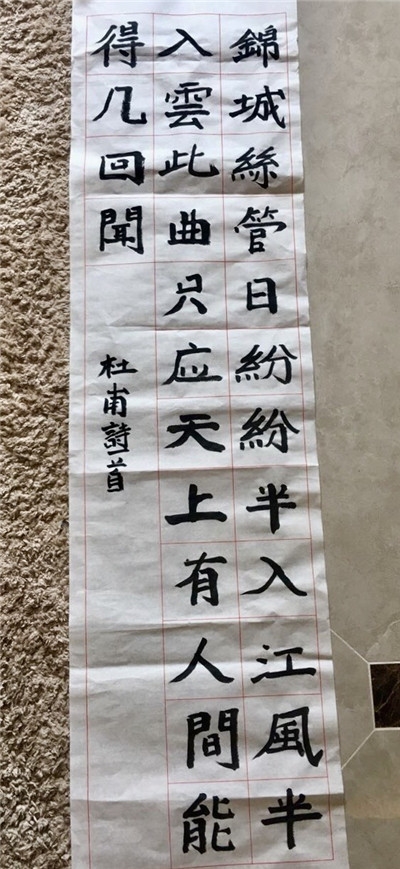 錦城絲管日紛紛半入江風半
入雲此曲只应天上有人間能
得几回聞
杜甫詩一首